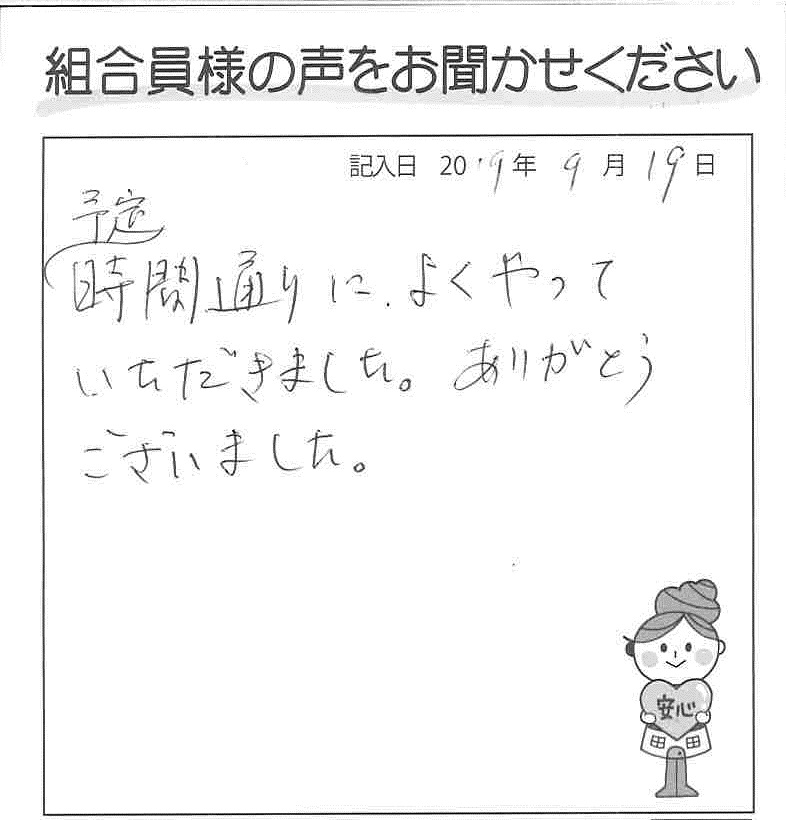 組合員様の声をお聞かせください
記入日 2019年 9月 19日
予定
時間通りに、よくやって
いただきました。ありがとう
ございました。
安心